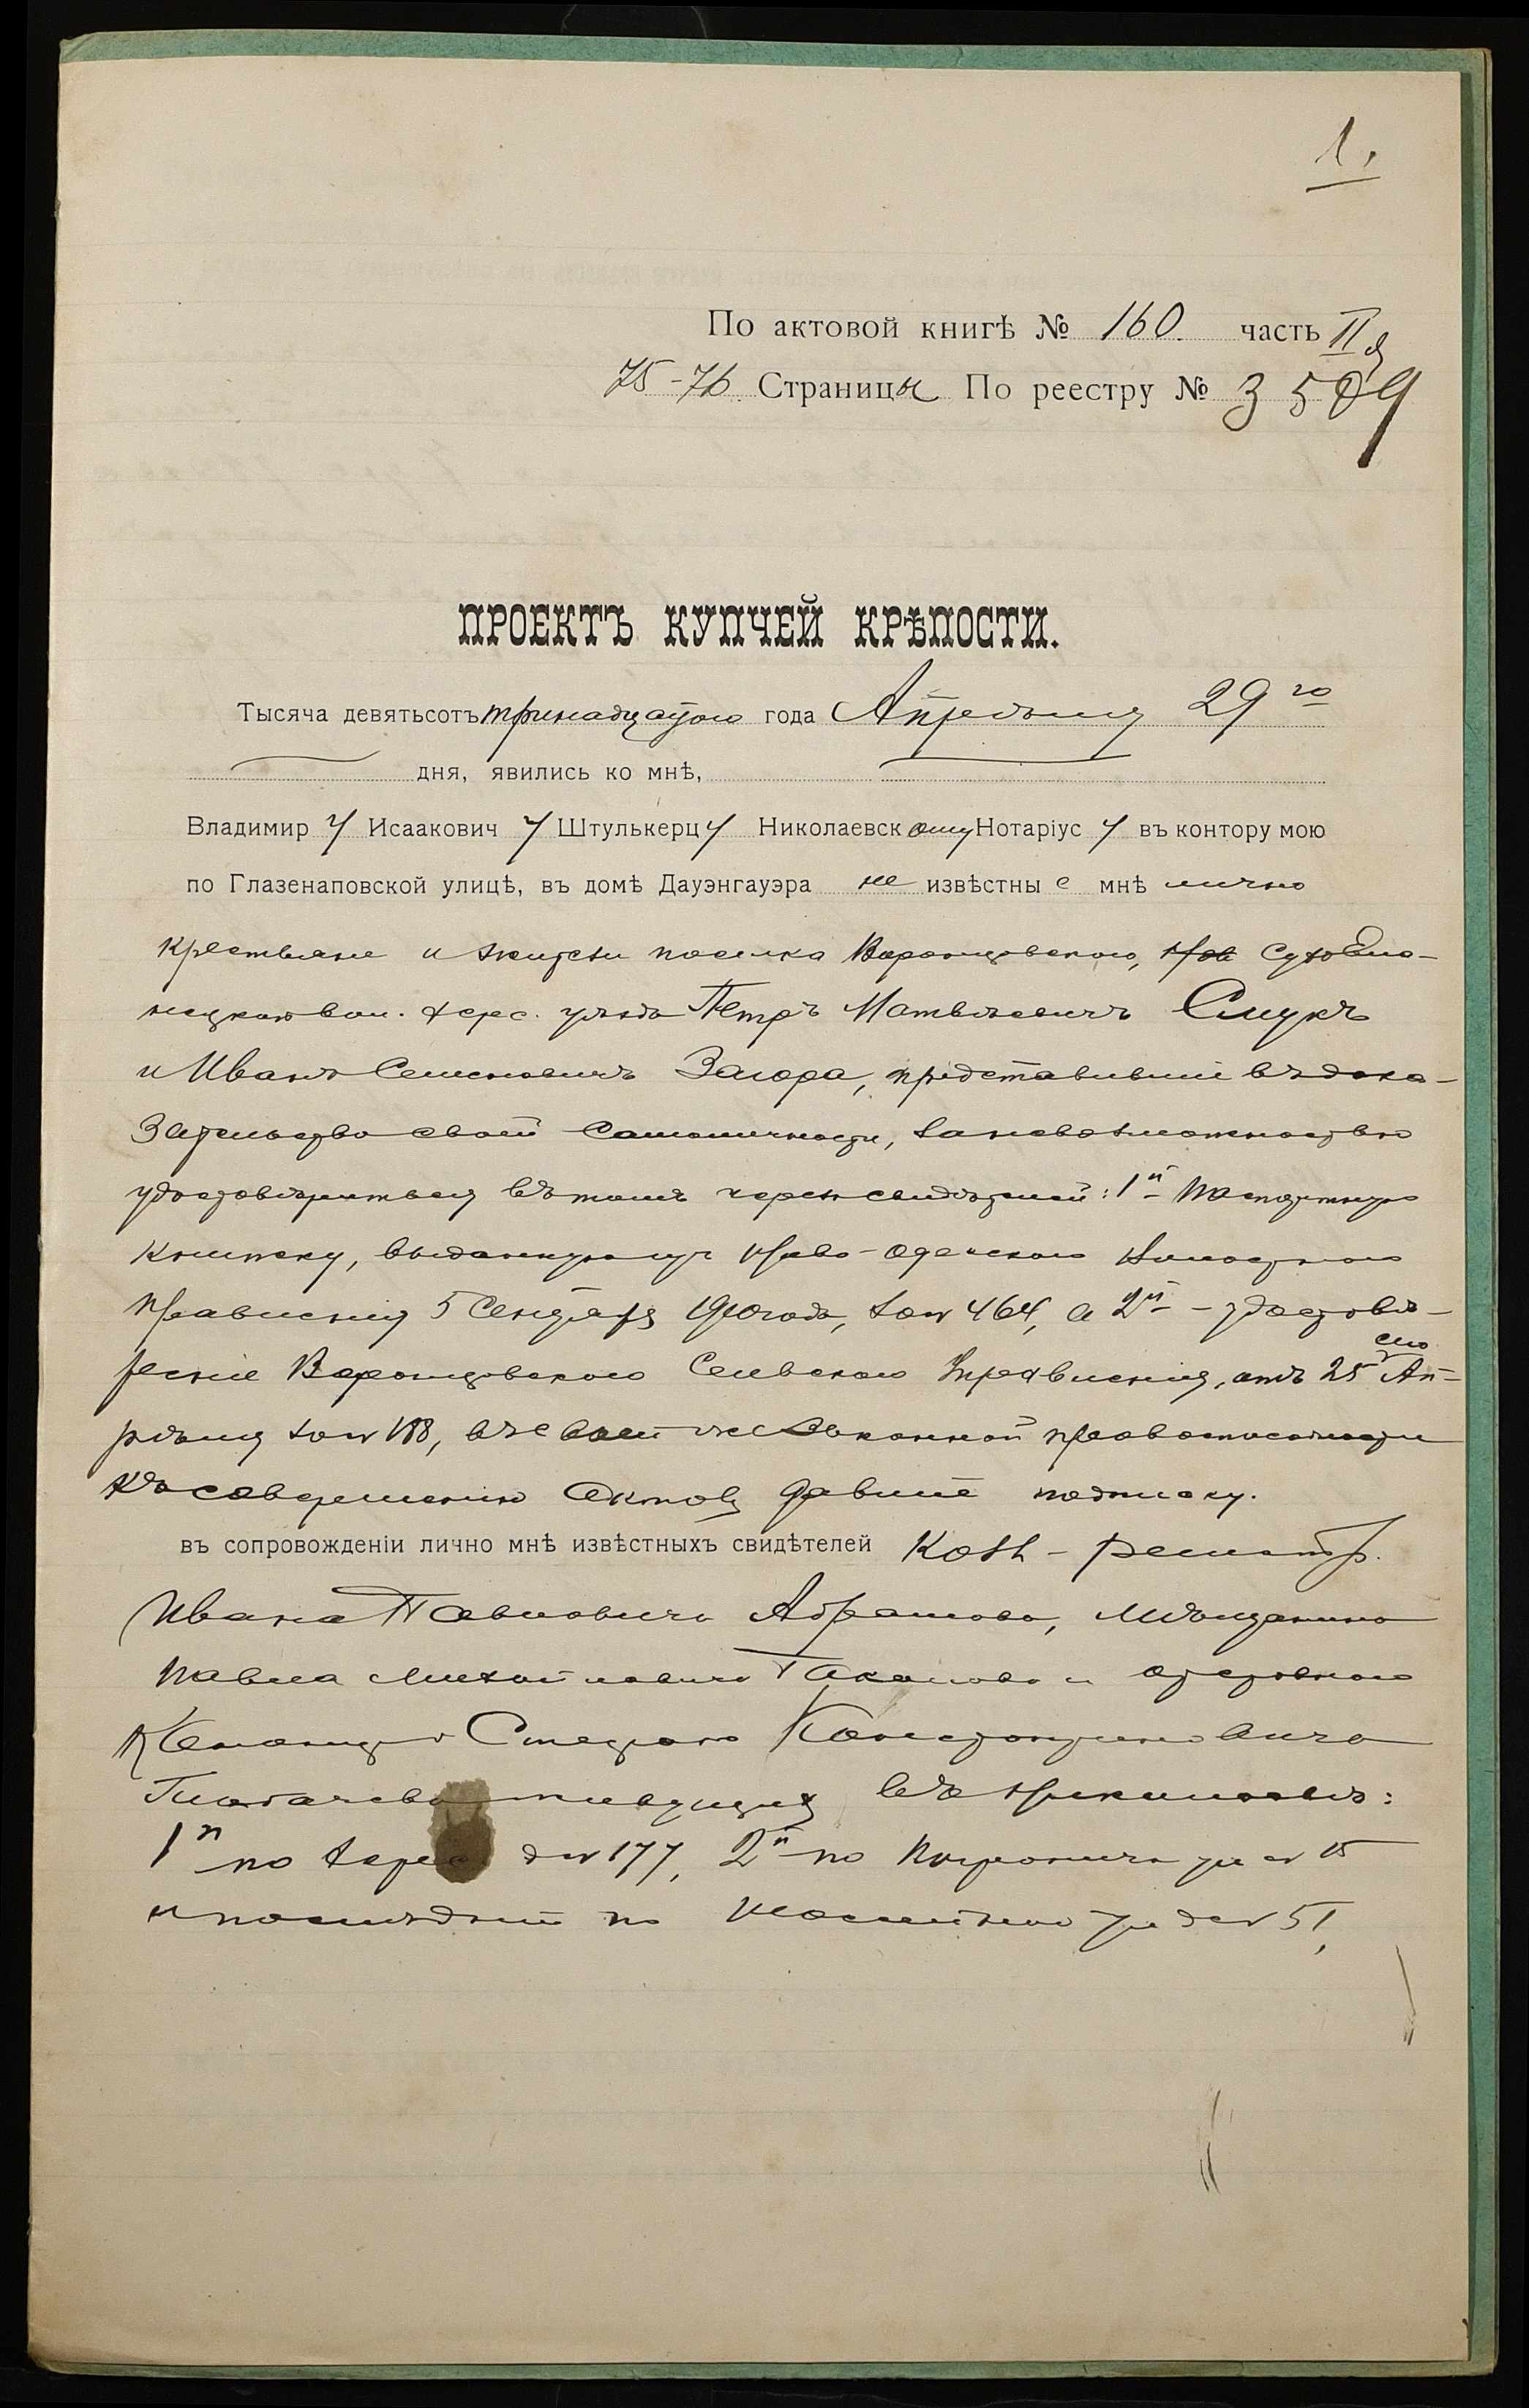 1.
По актовой книгѣ № 160. часть II я
75-76 Страницы По реестру № 3589
ПРОЕКТЪ КУПЧЕЙ КРѢПОСТИ.
Тысяча девятьсотъ тринадцатого года Апрѣля 29 го
дня, явились ко мнѣ,
Владимир у Исаакович у Штулькерц у Николаевск ому Нотаріус у въ контору мою
по Глазенаповской улицѣ, въ домѣ Дауэнгауэра не извѣстны е мнѣ лично
крестьяне и жители поселка Воронцовского, Сухо Ела-
нецкой вол. Херс. уѣзда Петръ Матвѣевичъ Смукъ
и Иванъ Семеновичъ Загора, представившіе въ дока-
зательство своей самоличности, за невозможностью
удостовѣриться въ томъ черезъ свидѣтелей: 1й паспортную
книжку, выданную ему Ново-Одесского Волостного
Правленія 5 Сентября 1910 года, за № 464, а 2й - удостовѣ-
реніе Воронцовского Сельского Управленія, отъ 25 сего Ап-
рѣля за № 188, въ своей же законной правоспособности
къ совершенію актовъ давшіе подписку.
въ сопровожденіи лично мнѣ извѣстныхъ свидѣтелей Колл-регистр.
Ивана Павловича Абрамова, мѣщанина
Павла Михайловича и отставного
Степана Константиновича
живущихъ въ Николаевѣ:
1й по Херс д № 177, 2й по ул № 15
и послѣдній по ул д № 51,